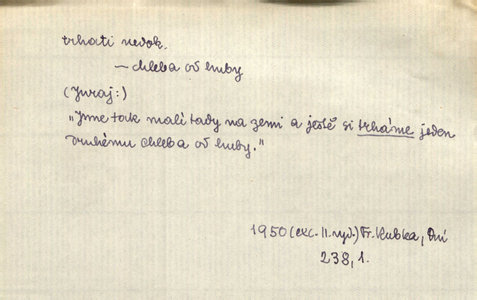 trhati nedok.
— chleba od huby
(Juraj:)
„Jsme tak malí tady na zemi a ještě si trháme jeden
druhému chleba od huby."
1950 (exc. II. vyd.) Fr. Kubka, Dní
238, 1.